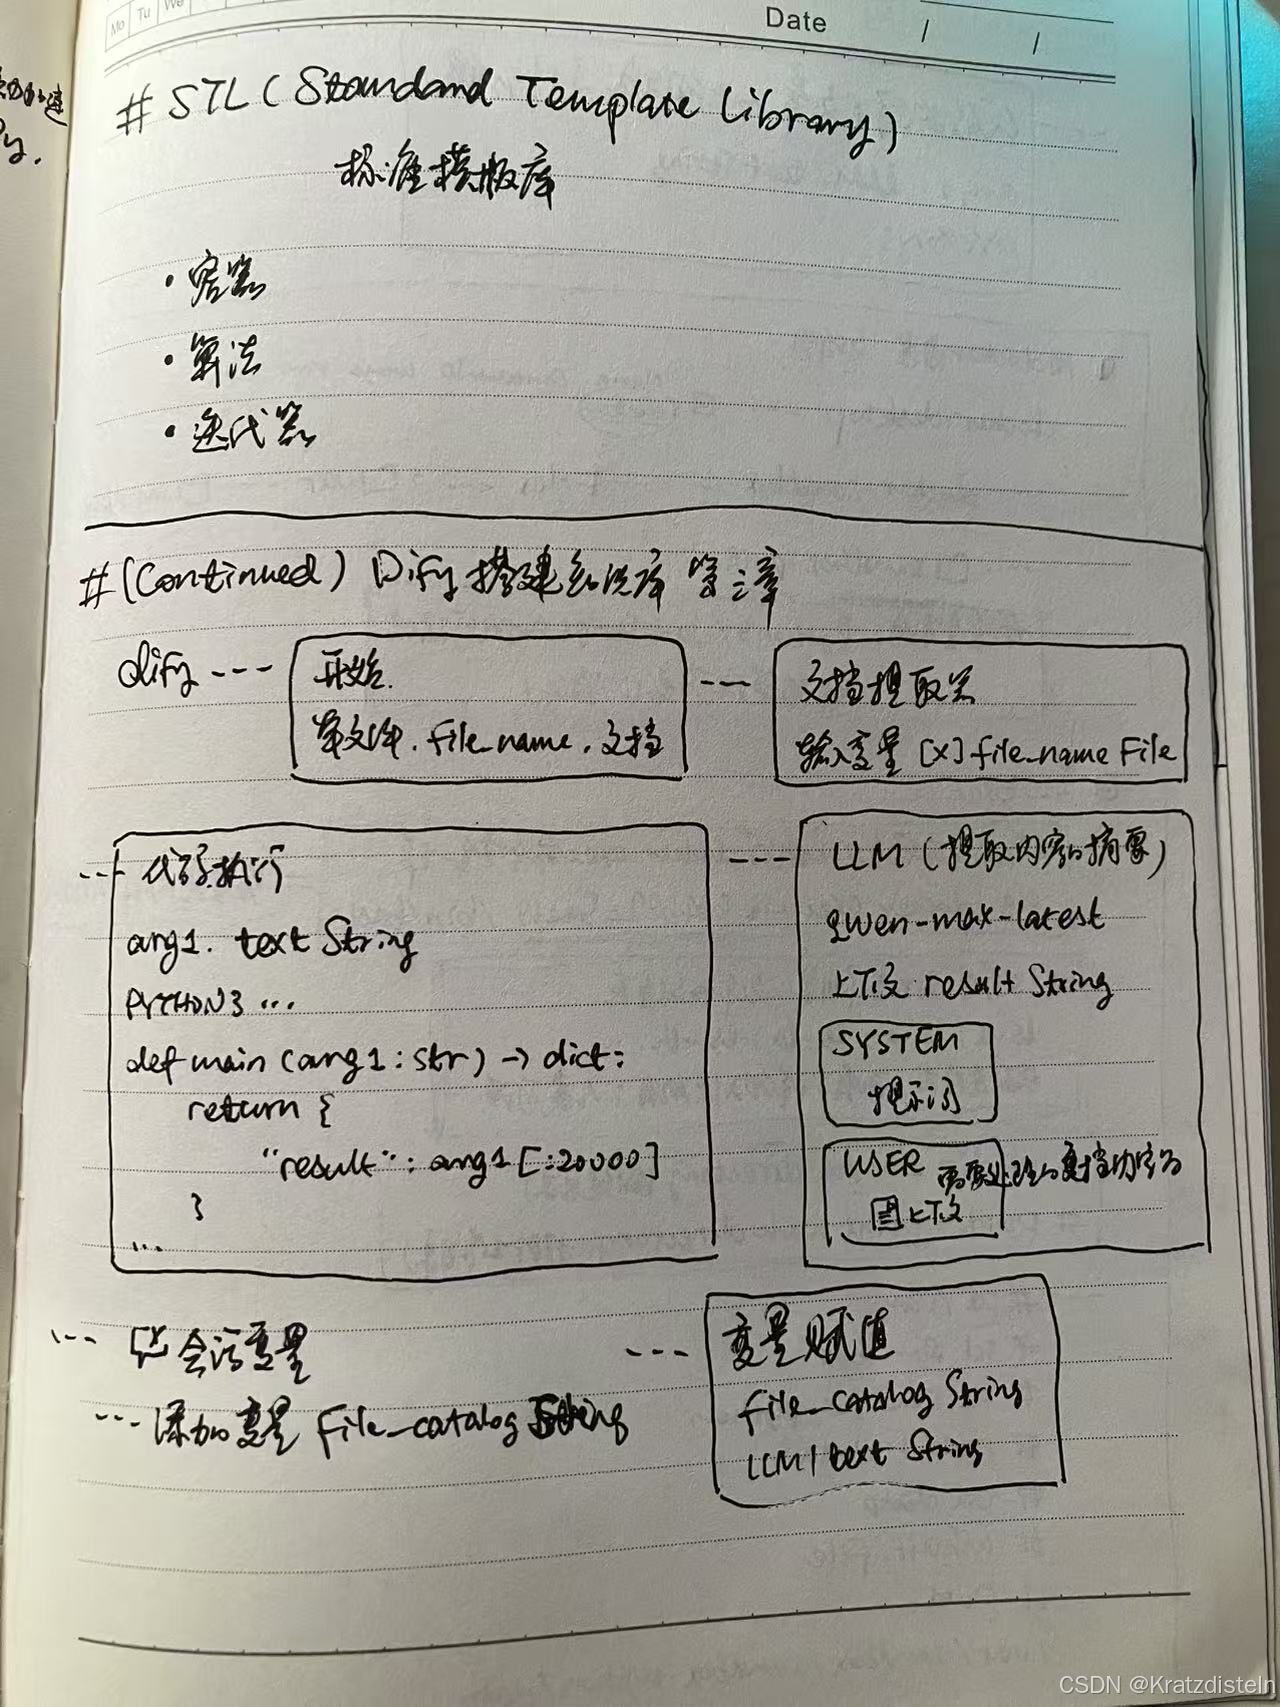 Mo Tu We
Date / /
# STL (Standard Template Library)
标准模版库
· 容器
· 算法
· 迭代器
# (Continued) Dify 搭建知识库 第三章
dify --- 开始
单文件. file_name. 文档
--- 文档提取器
输入变量 [x] file_name File
--- 代码执行
arg1. text String
PYTHON3 ...
def main (arg1 : str) -> dict:
return {
"result" : arg1 [:20000]
}
...
--- LLM (提取内容的摘要)
qwen-max-latest
上下文 result String
SYSTEM
提示词
USER 需要处理的文档内容为
上下文
--- 会话变量
--- 添加变量 file_catalog String
--- 变量赋值
file_catalog String
LLM / text String
CSDN @Kratzdisteln